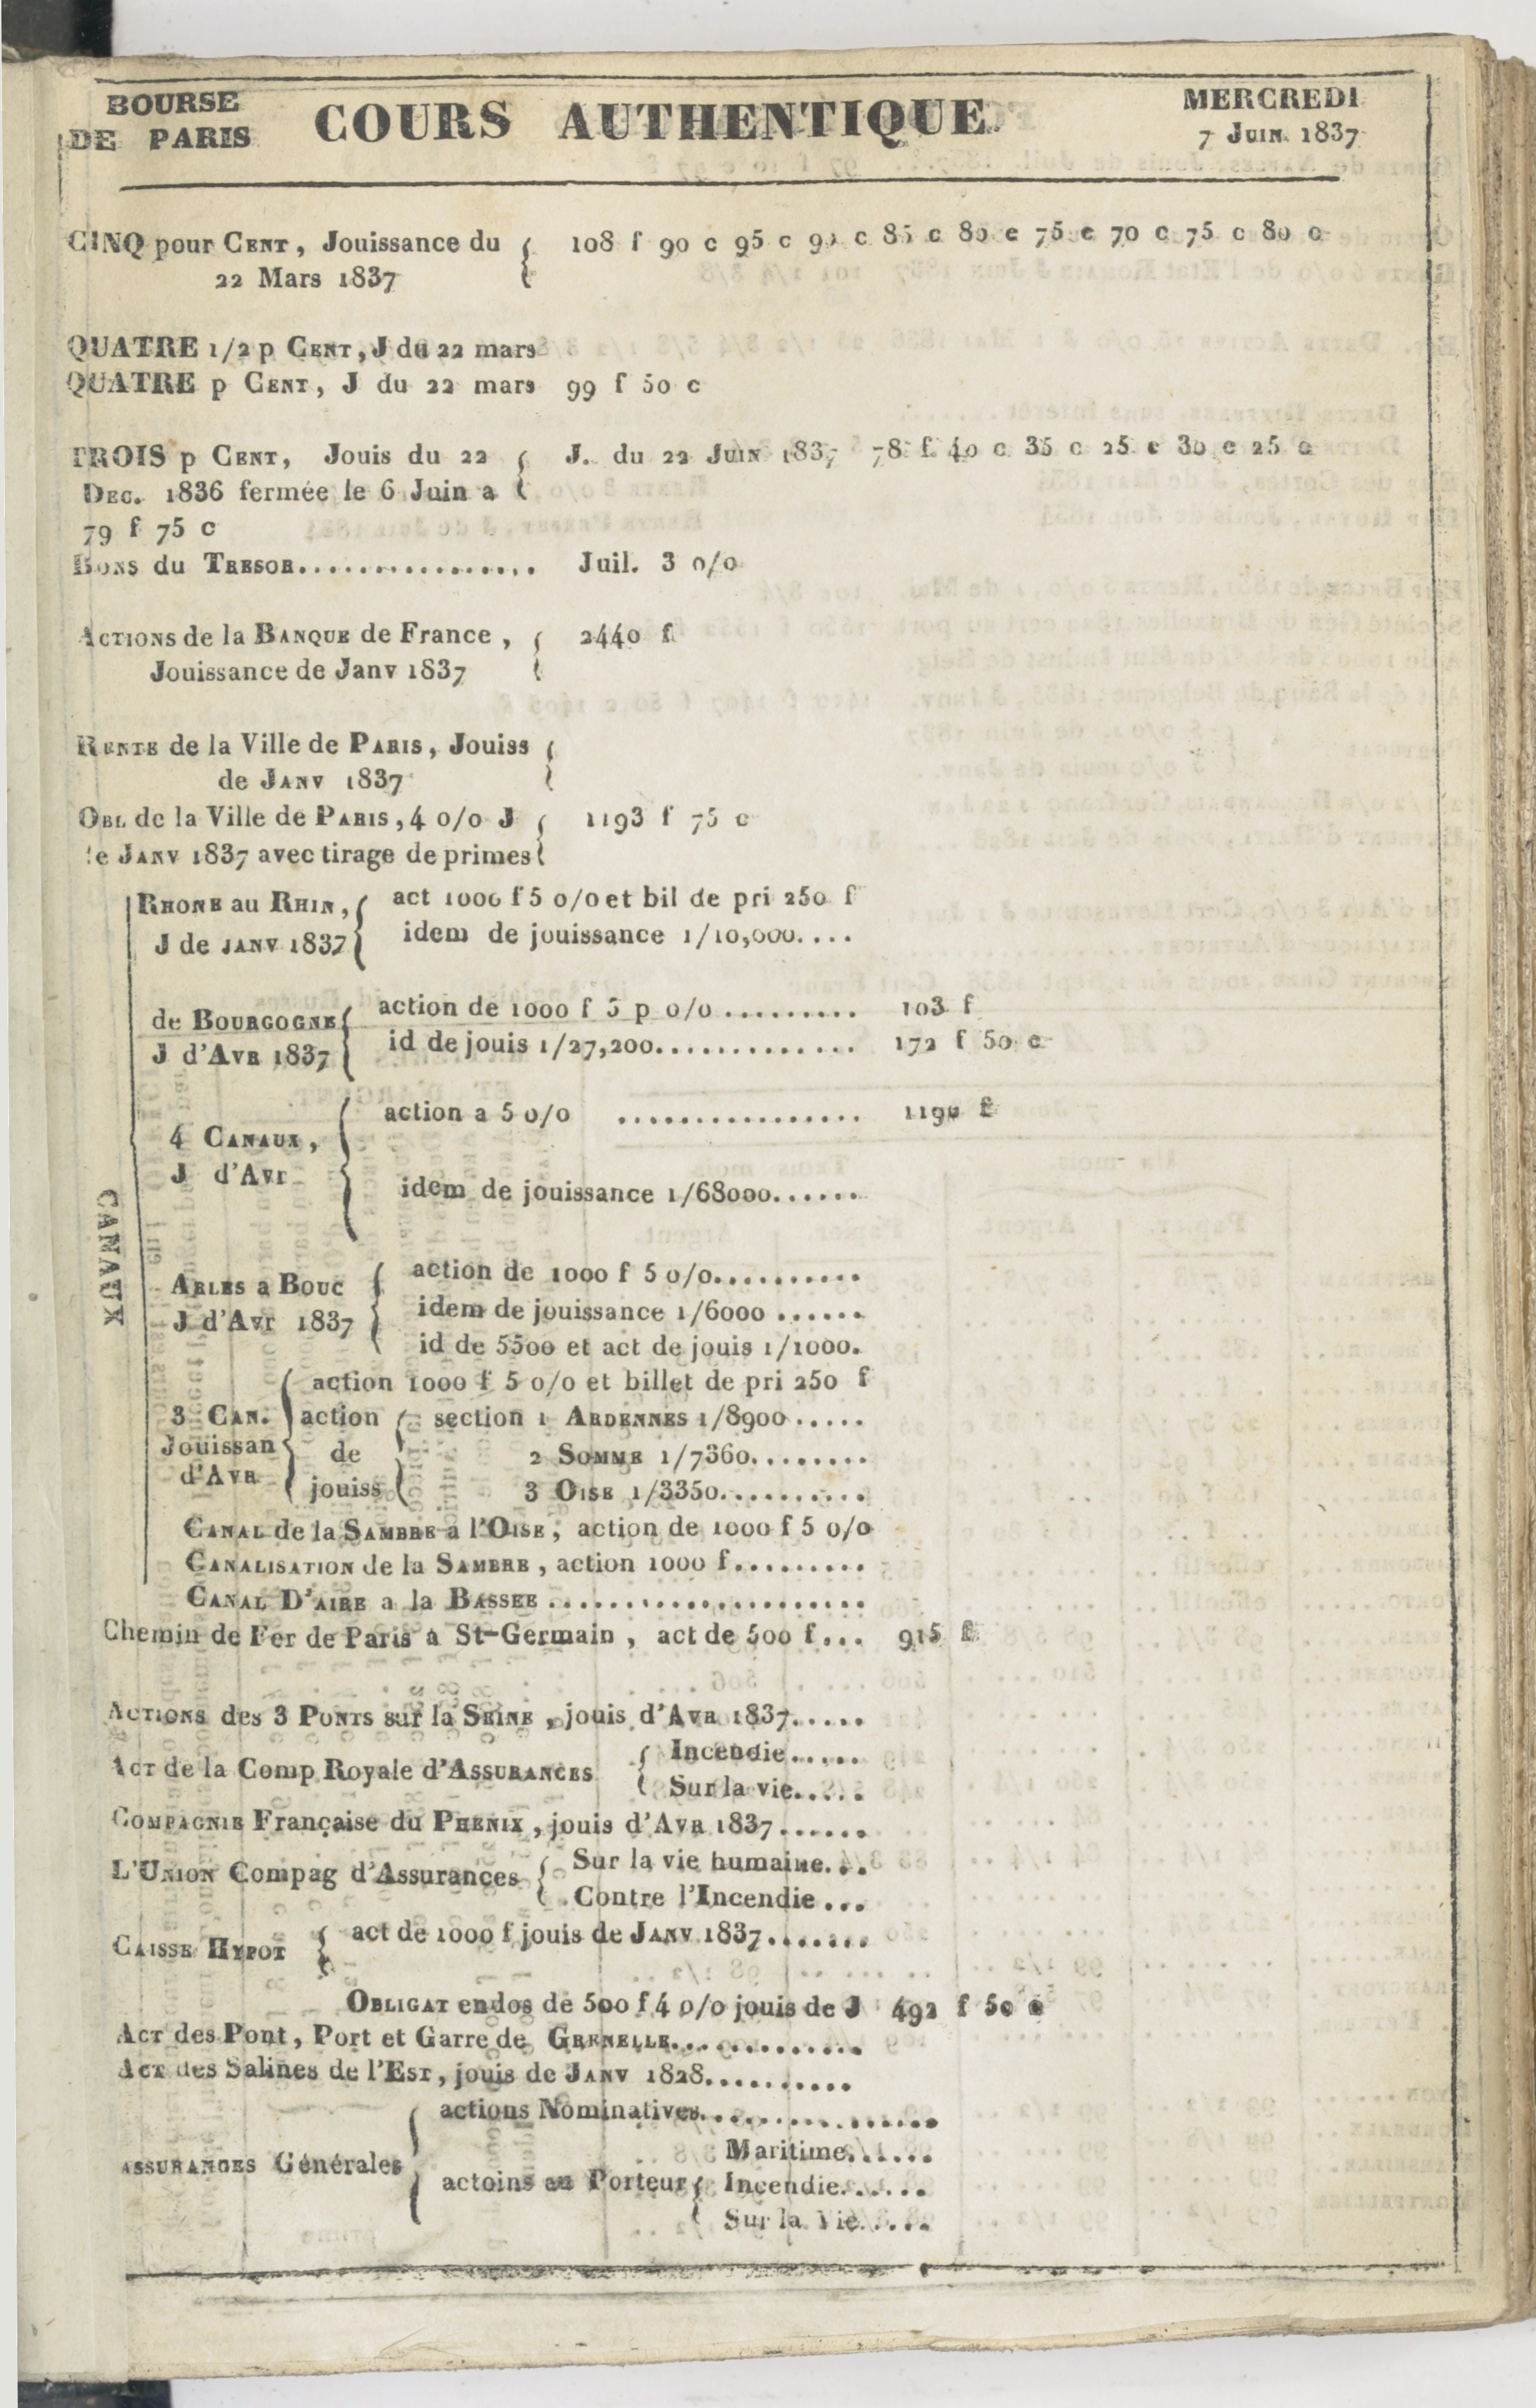 BOURSE
DE PARIS
COURS AUTHENTIQUE
MERCREDI
7 JUIN 1837
CINQ pour CENT, Jouissance du { 108 f 90 c 95 c 90 c 85 c 80 c 75 c 70 c 75 c 80 c
22 Mars 1837
QUATRE 1/2 p CENT, J du 22 mars
QUATRE p CENT, J du 22 mars 99 f 50 c
TROIS p CENT, Jouis du 22 { J. du 22 JUIN 1837 78 f 40 c 35 c 25 c 30 c 25 c
DEC. 1836 fermée le 6 Juin a
79 f 75 c
BONS du TRESOR................ Juil. 3 0/0
ACTIONS de la BANQUE de France, { 2440 f
Jouissance de Janv 1837
RENTE de la Ville de PARIS, Jouiss {
de JANV 1837
OBL de la Ville de PARIS, 4 0/0 J { 1193 f 75 c
de JANV 1837 avec tirage de primes
CANAUX
RHONE au RHIN, { act 1000 f 5 0/0 et bil de pri 250 f
J de JANV 1837 idem de jouissance 1/10,000....
de BOURGOGNE { action de 1000 f 5 p 0/0 ......... 103 f
J d'AVR 1837 id de jouis 1/27,200.............. 172 f 50 c
action a 5 0/0 ................ 1190 f
4 CANAUX, {
J d'Avr
idem de jouissance 1/68000......
action de 1000 f 5 0/0..........
ARLES a BOUC {
idem de jouissance 1/6000 ......
J d'Avr 1837
id de 5500 et act de jouis 1/1000.
action 1000 f 5 0/0 et billet de pri 250 f
3 CAN. { action { section 1 ARDENNES 1/8900.....
Jouissan de 2 SOMME 1/7360........
d'AVR jouiss 3 OISE 1/3350..........
CANAL de la SAMBRE a l'OISE, action de 1000 f 5 0/0
CANALISATION de la SAMBRE, action 1000 f.........
CANAL D'AIRE a la BASSEE .....................
Chemin de Fer de Paris a St-Germain, act de 500 f... 915 f
ACTIONS des 3 PONTS sur la SEINE, jouis d'AVR 1837.....
ACT de la Comp Royale d'ASSURANCES { Incendie.....
Sur la vie.....
COMPAGNIE Française du PHENIX, jouis d'AVR 1837......
L'UNION Compag d'Assurances { Sur la vie humaine...
Contre l'Incendie ...
CAISSE HYPOT { act de 1000 f jouis de JANV 1837.......
OBLIGAT endos de 500 f 4 0/0 jouis de J 492 f 50 c
ACT des Pont, Port et Garre de GRENELLE.............
ACT des Salines de l'EST, jouis de JANV 1828..........
actions Nominatives................
ASSURANCES Générales { Maritime......
actoins au Porteur { Incendie......
Sur la Vie.....